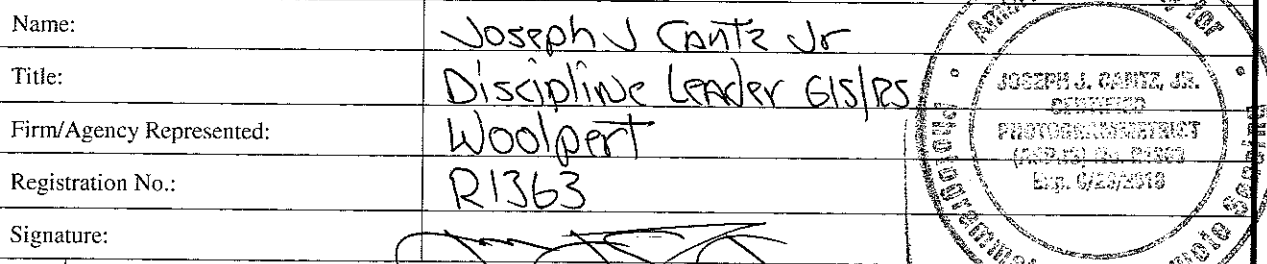 Name: Joseph J Cantz Jr
Title: Discipline Leader GIS/RS
Firm/Agency Represented: Woolpert
Registration No.: R1363
Signature:
JOSEPH J. CANTZ, JR.
CERTIFIED
PHOTOGRAMMETRIST
(ASPRS) No. R1363